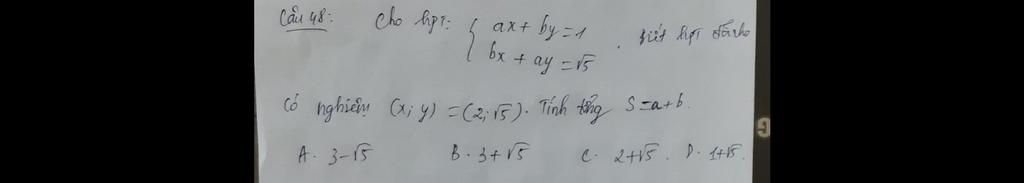 Câu 48: Cho hpt: { ax + by = 1 . biết hpt đã cho
bx + ay = √5
Có nghiệm (x; y) = (2; √5). Tính tổng S = a + b.
A. 3 - √5 B. 3 + √5 C. 2 + √5. D. 1 + √5.